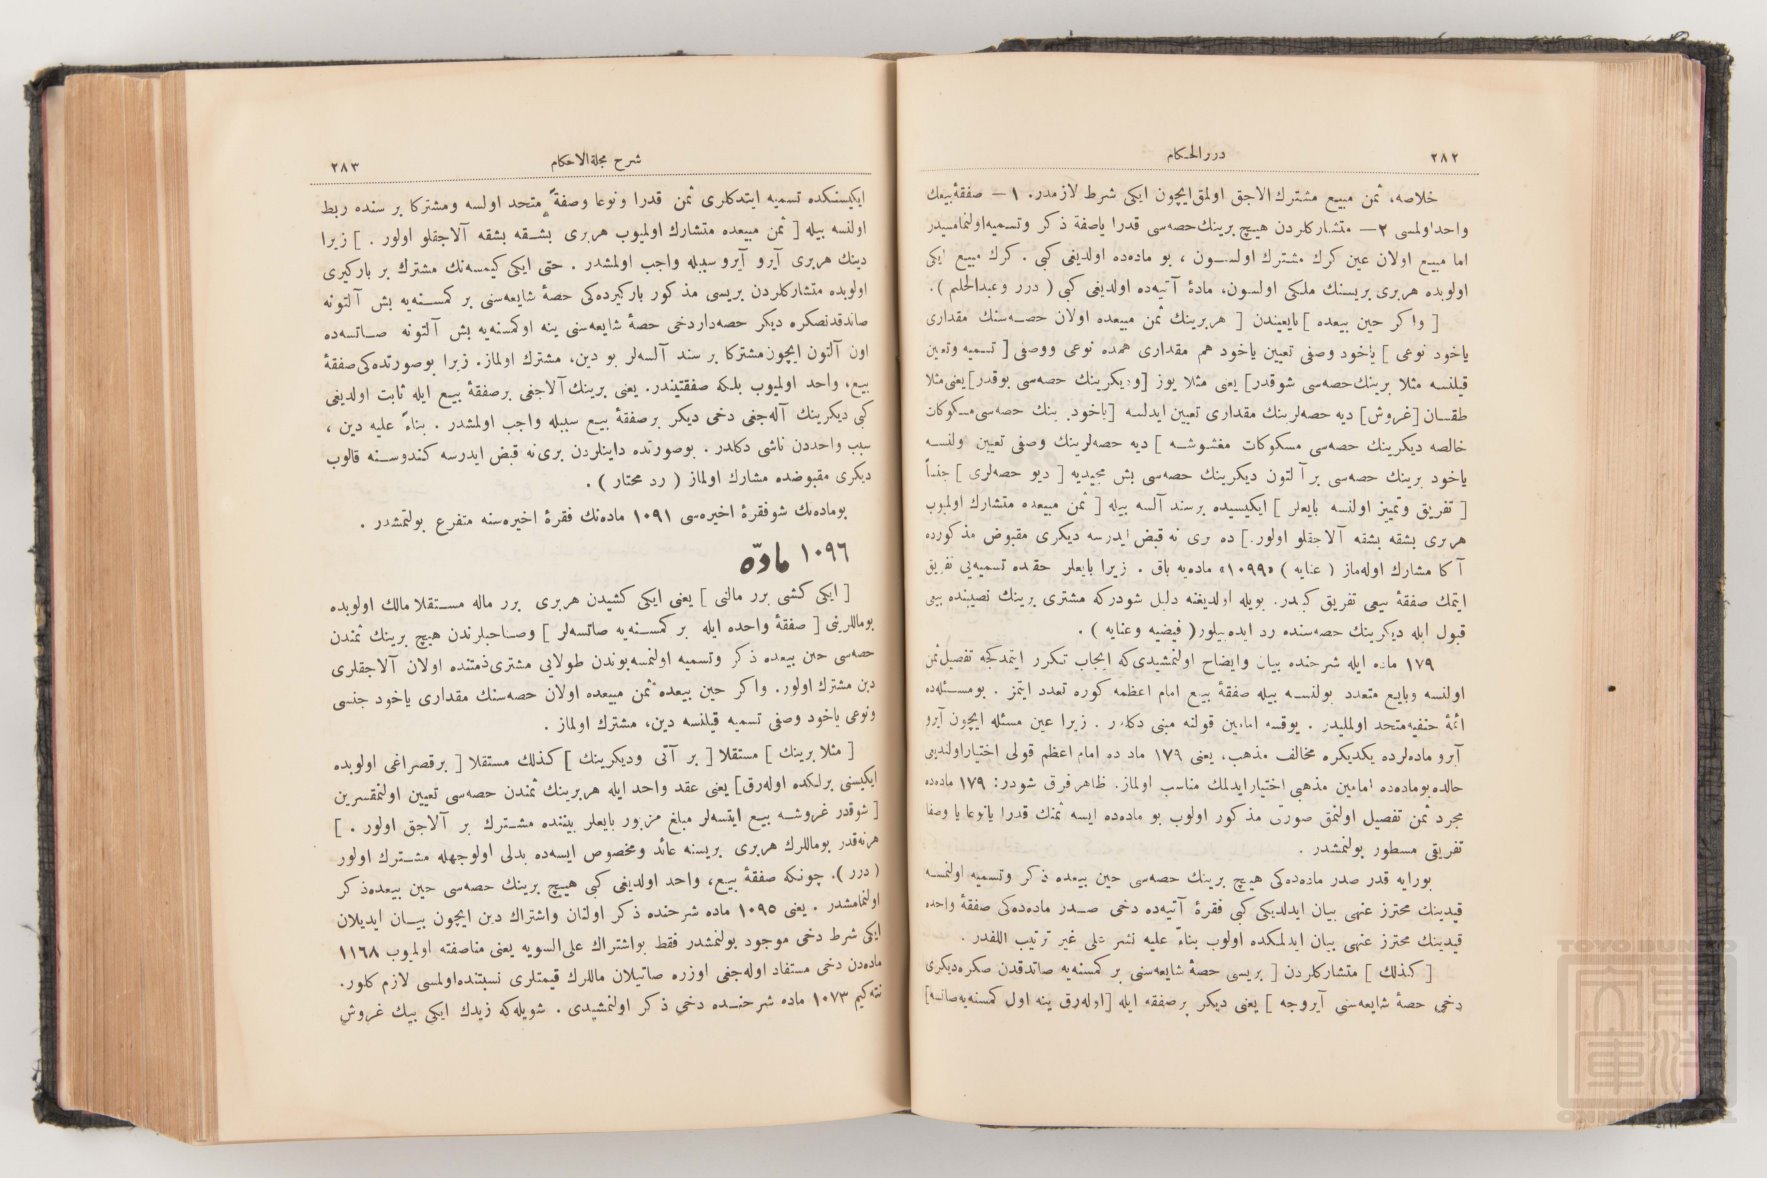 ٢٨٢
دررالحكام
خلاصه، ثمن مبيع مشترك الاجق اولمق ايچون ايكى شرط لازمدر. ١ — صفقهٔ بيعك
واحد اولمسى ٢ — متشاركلردن هيچ برينك حصه‌سى قدرا ياصفة ذكر وتسميه اولنمامسيدر
اما مبيع اولان عين كرك مشترك اولسـون ، بو ماده‌ده اولديغى كبى . كرك مبيع ايكى
اولوبده هربرى بريسنك ملكى اولسون، مادهٔ آتيه‌ده اولديغى كبى ( درر وعبدالحليم ).
[ واكر حين بيعده ] بايعيندن [ هربرينك ثمن مبيعده اولان حصـه‌سنك مقدارى
ياخود نوعى ] ياخود وصفى تعيين ياخود هم مقدارى همده نوعى ووصفى [ تسميه وتعيين
قيلنسه مثلا برينك حصه‌سى شوقدر] يعنى مثلا يوز [وديكرينك حصه‌سى بوقدر] يعنى مثلا
طقسان [غروش] ديه حصه‌لرينك مقدارى تعيين ايدلسه [ياخود برينك حصه‌سى مسكوكات
خالصه ديكرينك حصه‌سى مسكوكات مغشوشـه ] ديه حصه‌لرينك وصفى تعيين اولنسـه
ياخود برينك حصه‌سى بر آلتون ديكرينك حصه‌سى بش مجيديه [ ديو حصه‌لرى ] جنساً
[ تفريق وتمييز اولنسه بايعلر ] ايكيسيده برسند آلسه بيله [ ثمن مبيعده متشارك اولميوب
هربرى بشقه بشقه آلاجقلو اولور.] ده برى نه قبض ايدرسه ديكرى مقبوض مذكورده
آكا مشارك اوله‌ماز ( عنايه ) «١٠٩٩» ماده‌يه باق . زيرا بايعلر حقنده تسميه‌يى تفريق
ايتمك صفقهٔ بيعى تفريق كبدر. بويله اولديغنه دليل شودركه مشترى برينك نصيبنده بيعى
قبول ايله ديكرينك حصه‌سنده رد ايده‌بيلور( فيضيه وعنايه ) .
١٧٩ ماده ايله شرحنده بيان وايضاح اولنمشيدى كه ايجاب تكرر ايتمدكجه تفصيل ثمن
اولنسه وبايع متعدد بولنسـه بيله صفقهٔ بيع امام اعظمه كوره تعدد ايتمز . بومسـئله‌ده
ائمهٔ حنفيه متحد اولمليدر . يوقسه امامين قولنه مبنى دكلدر . زيرا عين مسئله ايچون آيرو
آيرو ماده‌لرده يكديكره مخالف مذهب، يعنى ١٧٩ ماده‌ده امام اعظم قولى اختيار اولنديغى
حالده بوماده‌ده امامين مذهبى اختيار ايدلمك مناسب اولماز. ظاهر فرق شودر: ١٧٩ ماده‌ده
مجرد ثمن تفصيل اولنمق صورتى مذكور اولوب بو ماده‌ده ايسه ثمنك قدرا يانوعا يا وصفا
تفريقى مسطور بولنمشدر .
بورايه قدر صدر ماده‌ده‌كى هيچ برينك حصه‌سى حين بيعده ذكر وتسميه اولنمسـه
قيدينك محترز عنهى بيان ايدلديكى كبى فقرهٔ آتيه‌ده دخى صـدر ماده‌ده‌كى صفقهٔ واحده
قيدينك محترز عنهى بيان ايدلمكده اولوب بناءً عليه نشر على غير ترتيب اللفدر .
[ كذلك ] متشاركلردن [ بريسى حصهٔ شايعه‌سنى بر كمسنه‌يه صاتدقدن صكره ديكرى
دخى حصهٔ شايعه‌سنى آيروجه ] يعنى ديكر برصفقه ايله [اوله‌رق ينه اول كمسنه‌يه صاتسه]
شرح مجلة الاحكام
٢٨٣
ايكيسنكده تسميه ايتدكلرى ثمن قدرا ونوعا وصفةً متحد اولسه ومشتركا بر سنده ربط
اولنسه بيله [ ثمن مبيعده متشارك اولميوب هربرى بشـقه بشقه آلاجقلو اولور . ] زيرا
دينك هربرى آيرو آيرو سببله واجب اولمشدر . حتى ايكى كيمسه‌نك مشترك بر باركيرى
اولوبده متشاركلردن بريسى مذكور باركيرده‌كى حصهٔ شايعه‌سنى بر كمسـنه‌يه بش آلتونه
صاتدقدنصكره ديكر حصه‌دار دخى حصهٔ شايعه‌سنى ينه اوكمسنه‌يه بش آلتونه صـاتسه‌ده
اون آلتون ايچون مشتركا بر سند آلسه‌لر بو دين، مشترك اولماز. زيرا بوصورتده‌كى صفقهٔ
بيع، واحد اولميوب بلكه صفقتيندر. يعنى برينك آلاجغى برصفقهٔ بيع ايله ثابت اولديغى
كبى ديكرينك آله‌جغى دخى ديكر برصفقهٔ بيع سببله واجب اولمشدر . بناءً عليه دين ،
سبب واحددن ناشى دكلدر . بوصورتده داينلردن برى نه قبض ايدرسه كندوسـنه قالوب
ديكرى مقبوضده مشارك اولماز ( رد محتار ) .
بوماده‌نك شوفقرهٔ اخيره‌سى ١٠٩١ ماده‌نك فقرهٔ اخيره‌سنه متفرع بولنمشدر .
١٠٩٦ مادّه
[ ايكى كشى برر مالنى ] يعنى ايكى كشيدن هربرى برر ماله مسـتقلا مالك اولوبده
بوماللرينى [ صفقهٔ واحده ايله بر كمسـنه‌يه صاتسه‌لر ] وصـاحبلرندن هيچ برينك ثمندن
حصه‌سى حين بيعده ذكر وتسميه اولنمسه بوندن طولايى مشترى ذمتنده اولان آلاجقلرى
دين مشترك اولور. واكر حين بيعده ثمن مبيعده اولان حصه‌سنك مقدارى ياخود جنسى
ونوعى ياخود وصفى تسميه قيلنسه دين، مشترك اولماز .
[ مثلا برينك ] مستقلا [ بر آتى وديكرينك ] كذلك مستقلا [ برقصراغى اولوبده
ايكيسنى برلكده اوله‌رق] يعنى عقد واحد ايله هربرينك ثمندن حصه‌سى تعيين اولنمقسزين
[ شوقدر غروشـه بيـع ايتسه‌لر مبلغ مزبور بايعلر بيننده مشـترك بر آلاجق اولور . ]
هرنه‌قدر بوماللرك هربرى بريسنه عائد ومخصوص ايسه‌ده بدلى اولوجهله مشـترك اولور
( درر ). چونكه صفقهٔ بيع، واحد اولديغى كبى هيـچ برينك حصه‌سى حين بيعده ذكر
اولنمامشدر . يعنى ١٠٩٥ ماده شرحنده ذكر اولنان واشتراك دين ايچون بيـان ايديلان
ايكى شرط دخى موجود بولنمشدر فقط بواشتراك على‌السويه يعنى مناصفته اولميوب ١١٦٨
ماده‌دن دخى مستفاد اوله‌جغى اوزره صاتيلان ماللرك قيمتلرى نسبتنده اولمسى لازم كلور.
نته‌كيم ١٠٧٣ ماده شرحنـده دخى ذكر اولنمشيدى . شويله‌كه زيدك ايكى بيك غروش
TOYO BUNKO